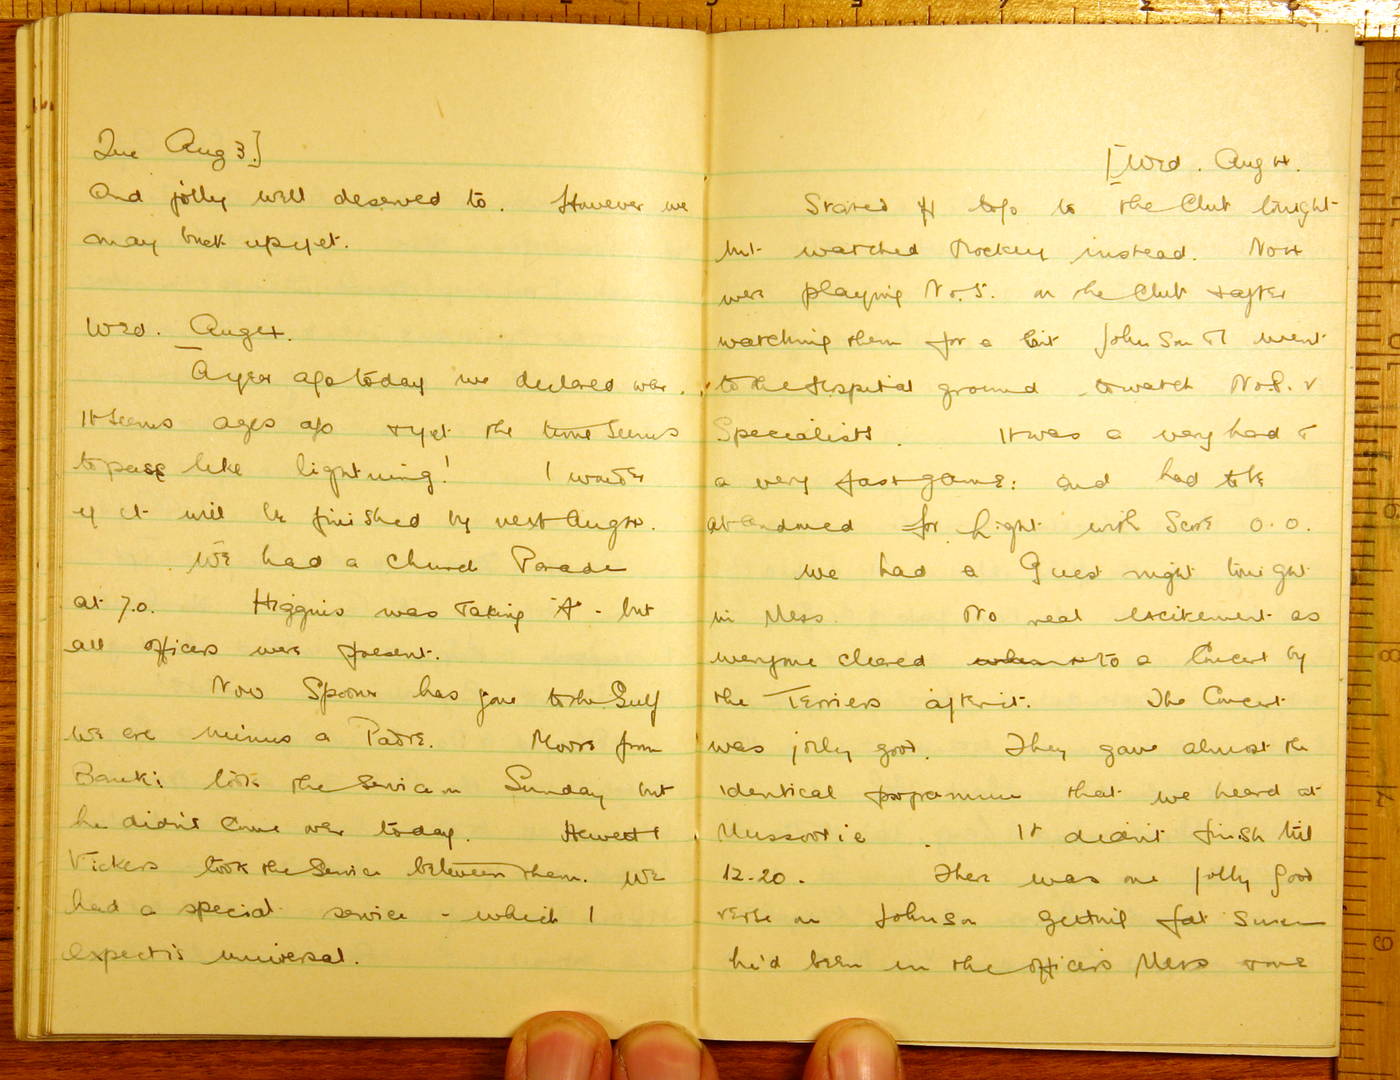 Tue Aug 3.]
and jolly well deserved to. However we
may buck up yet.
Wed. Aug 4.
A year ago today we declared war.
It seems ages ago & yet the time seems
to pass like lightning! I wonder
if it will be finished by next Aug 4.
We had a Church Parade
at 7.0. Higgins was taking 'A' - but
all officers were present.
Now Spooner has gone to the Gulf
we are minus a Padre. Moore from
took the service on Sunday but
he didn't come over today. Hewett &
Vickers took the service between them. We
had a special service - which I
expect is universal.
[Wed. Aug 4.
Started to go to the Club tonight
but watched Hockey instead. No 4
were playing No. 5. on the Club & after
watching them for a bit Johnson & I went
to the Hospital ground to watch No 8. v
Specialists. It was a very hard &
a very fast game: and had to be
abandoned for light with Score 0.0.
We had a Guest night tonight
in Mess. No real excitement as
everyone cleared to a Concert by
the Terriers after it. The Concert
was jolly good. They gave almost the
identical programme that we heard at
Mussoorie. It didn't finish till
12.20. There was one jolly good
verse on Johnson getting fat since
he'd been in the officers Mess & one